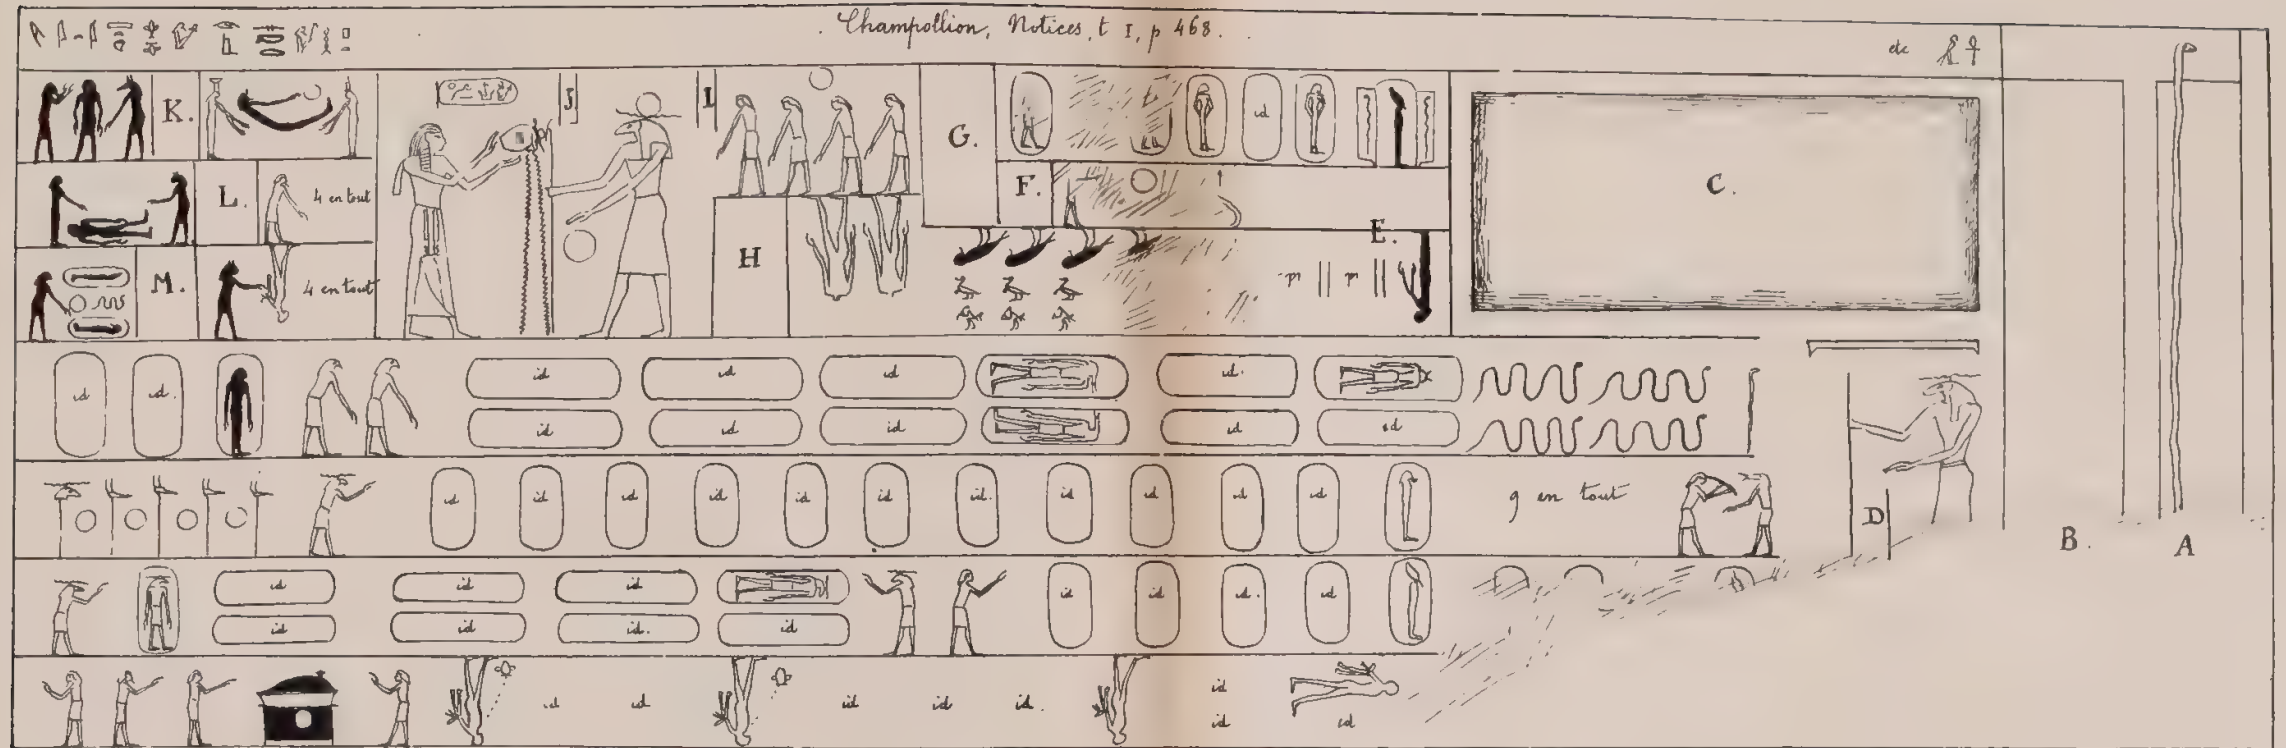 Champollion, Notices, t I, p 468.
etc
K.
J.
I
G.
id
C.
L.
4 en tout
F.
E.
M.
4 en tout
H
id
id.
id
id
id
id.
id
id
id
id
id
D
id
id
id
id
id
id
id.
id
id
id
id
9 en tout
B.
A
id
id
id
id
id
id.
id
id
id
id.
id
id
id
id
id
id.
id
id
id